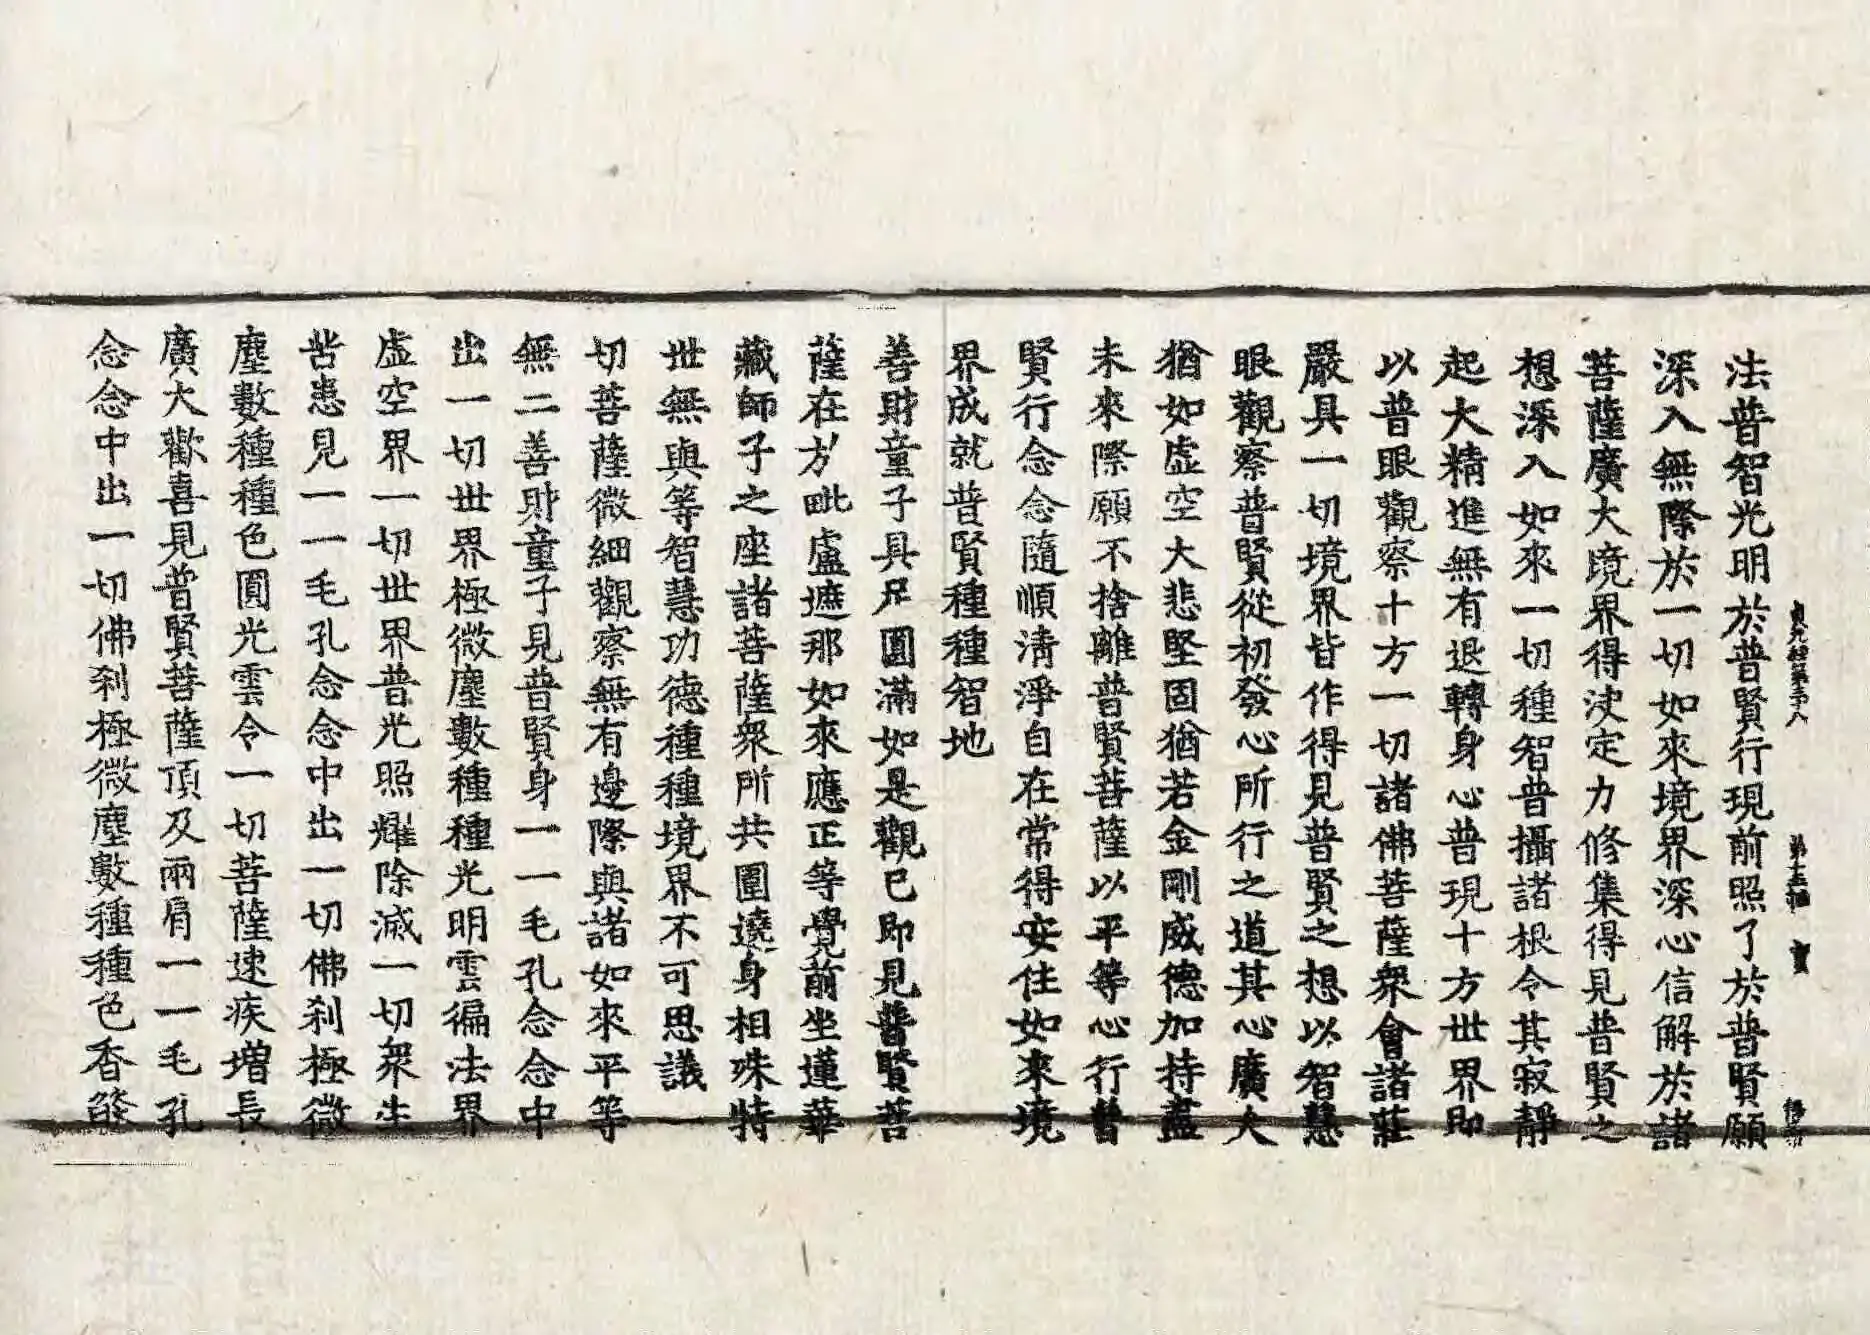 貞元經第三十八 第十五幅 寶
法普智光明於普賢行現前照了於普賢願
深入無際於一切如來境界深心信解於諸
菩薩廣大境界得決定力修集得見普賢之
想深入如來一切種智普攝諸根令其寂靜
起大精進無有退轉身心普現十方世界即
以普眼觀察十方一切諸佛菩薩衆會諸莊
嚴具一切境界皆作得見普賢之想以智慧
眼觀察普賢從初發心所行之道其心廣大
猶如虛空大悲堅固猶若金剛威德加持盡
未來際願不捨離普賢菩薩以平等心行普
賢行念念隨順淸淨自在常得安住如來境
界成就普賢種種智地
善財童子具足圓滿如是觀已即見普賢菩
薩在方毗盧遮那如來應正等覺前坐蓮華
藏師子之座諸菩薩衆所共圍遶身相殊特
世無與等智慧功德種種境界不可思議一
切菩薩微細觀察無有邊際與諸如來平等
無二善財童子見普賢身一一毛孔念念中
出一切世界極微塵數種種光明雲徧法界
虛空界一切世界普光照耀除滅一切衆生
苦患見一一毛孔念念中出一切佛刹極微
塵數種種色圓光雲令一切菩薩速疾增長
廣大歡喜見普賢菩薩頂及兩肩一一毛孔
念念中出一切佛刹極微塵數種種色香𦦨